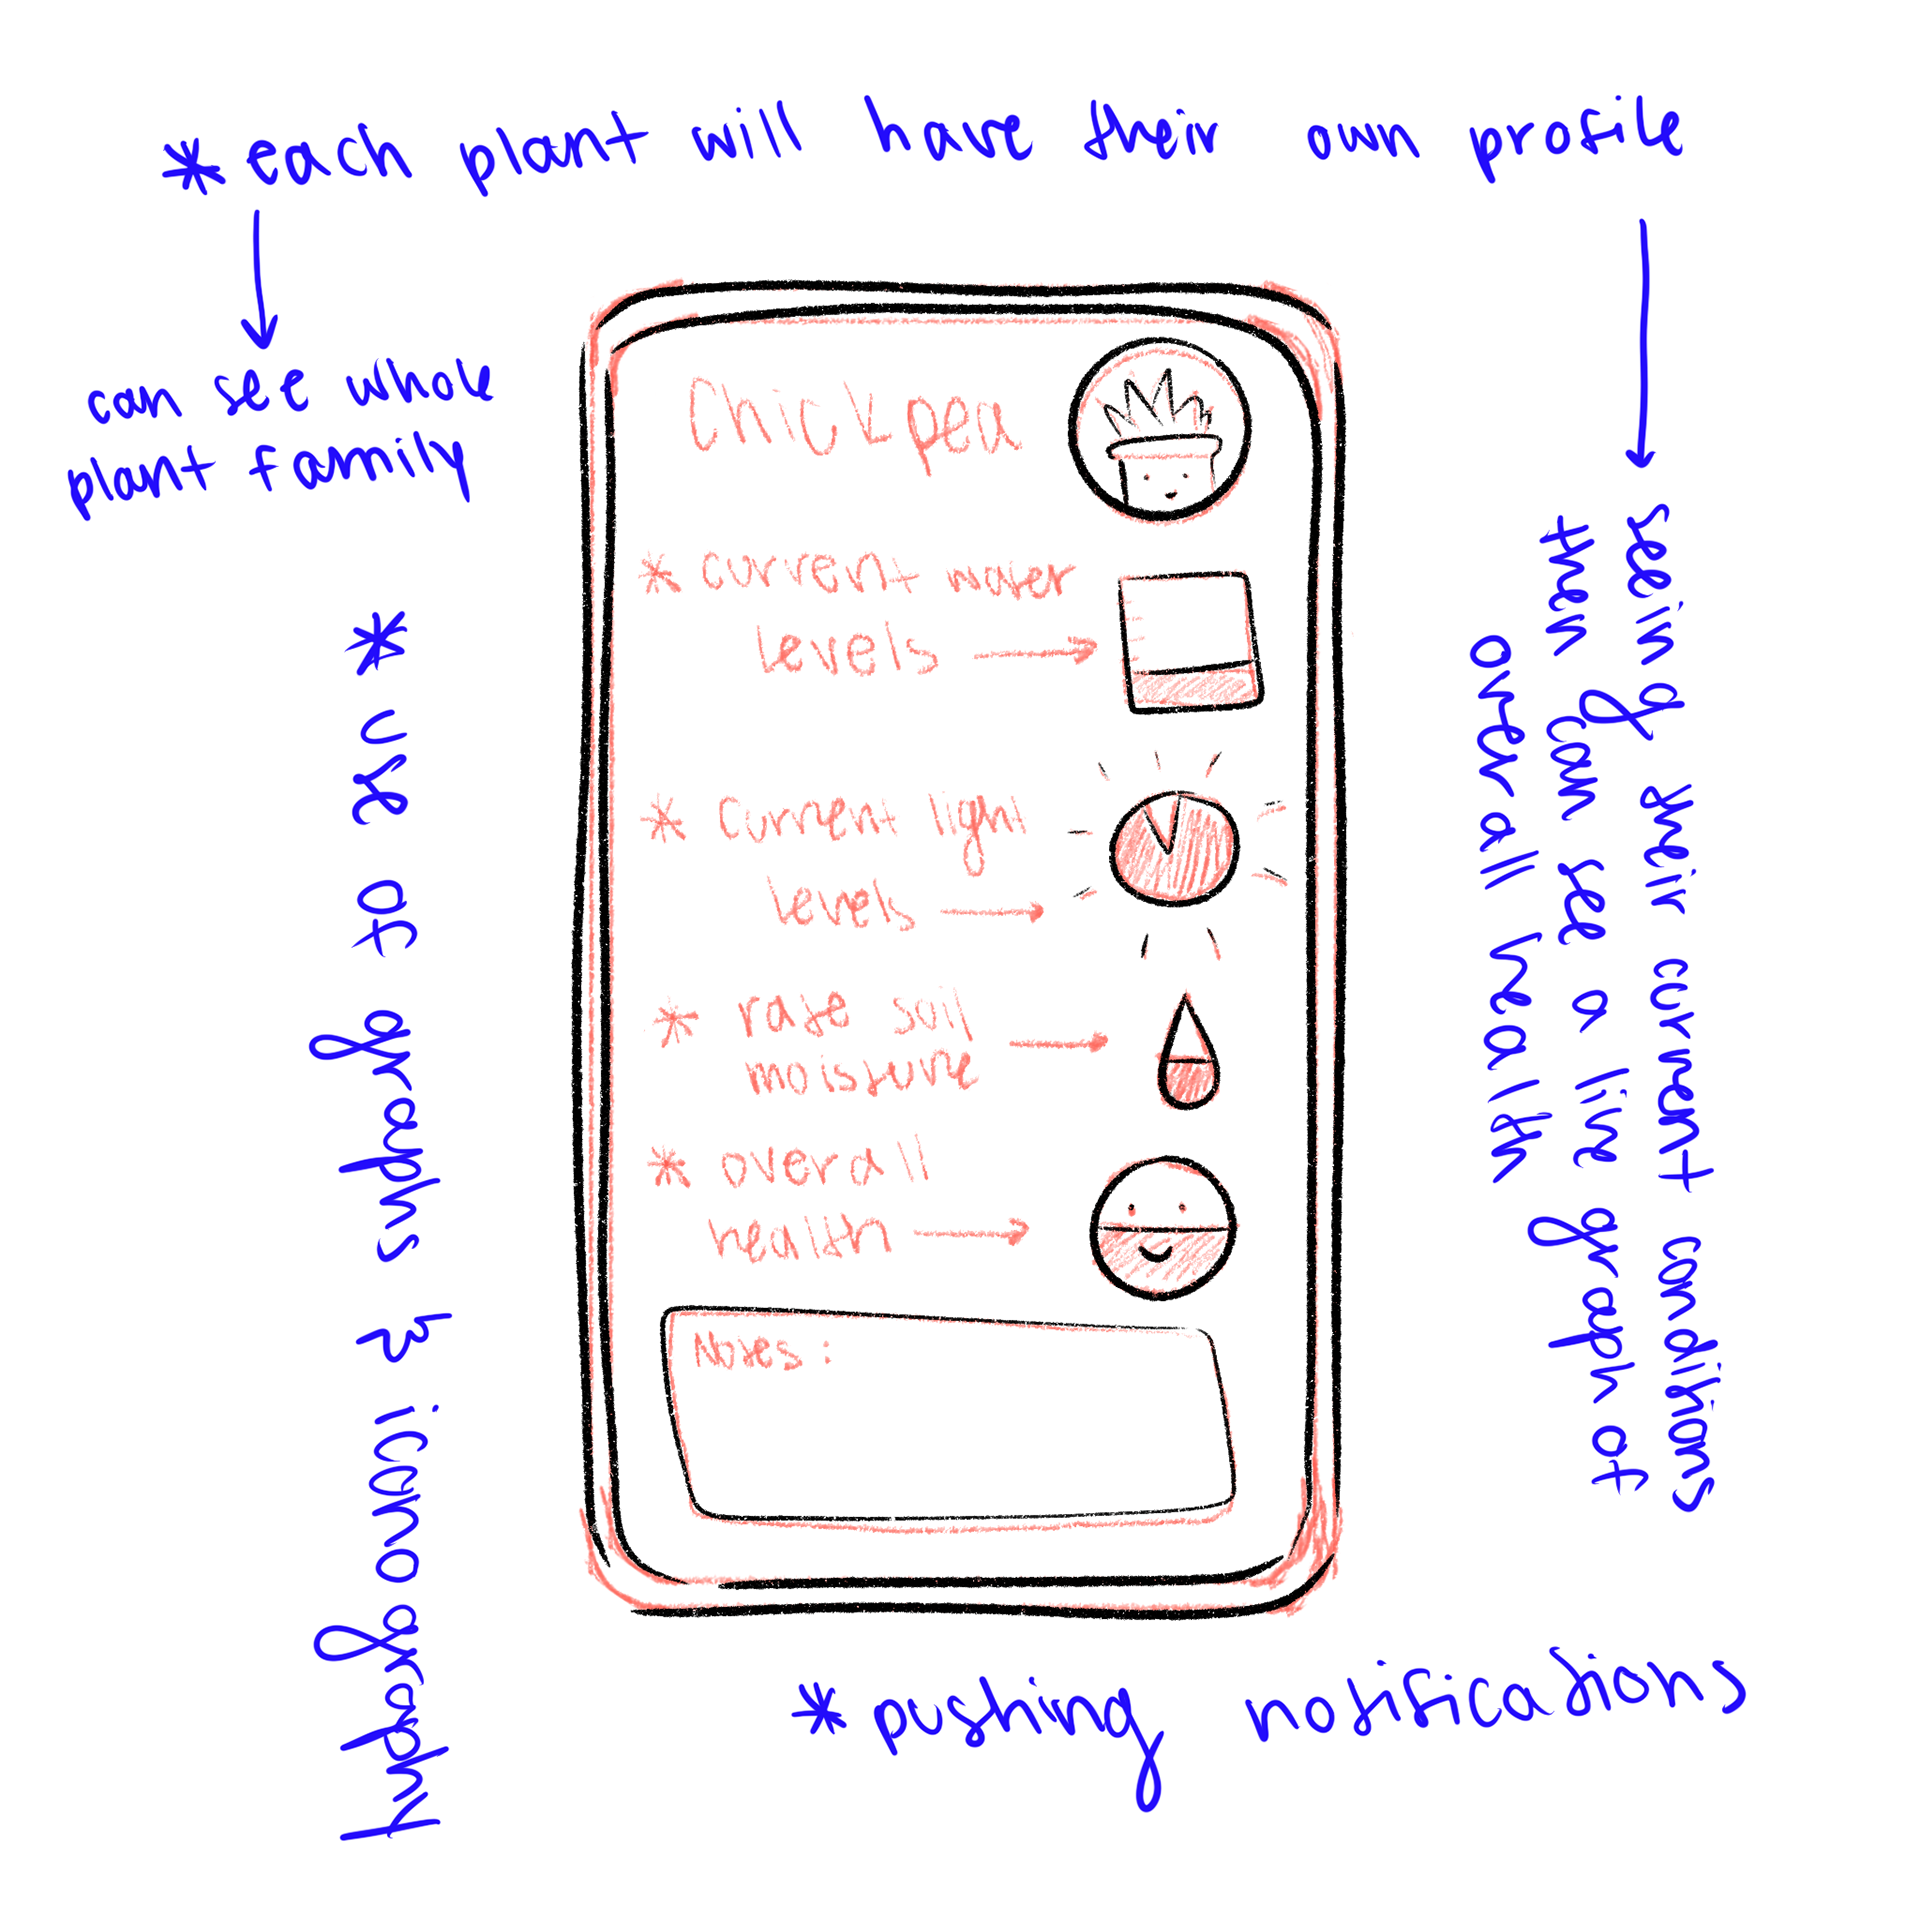 * each plant will have their own profile
can see whole
plant family
* use of graphs & iconography
Chickpea
* current water
levels
* current light
levels
* rate soil
moisture
* overall
health
Notes :
seeing their current conditions
then can see a live graph of
overall health
* pushing notifications